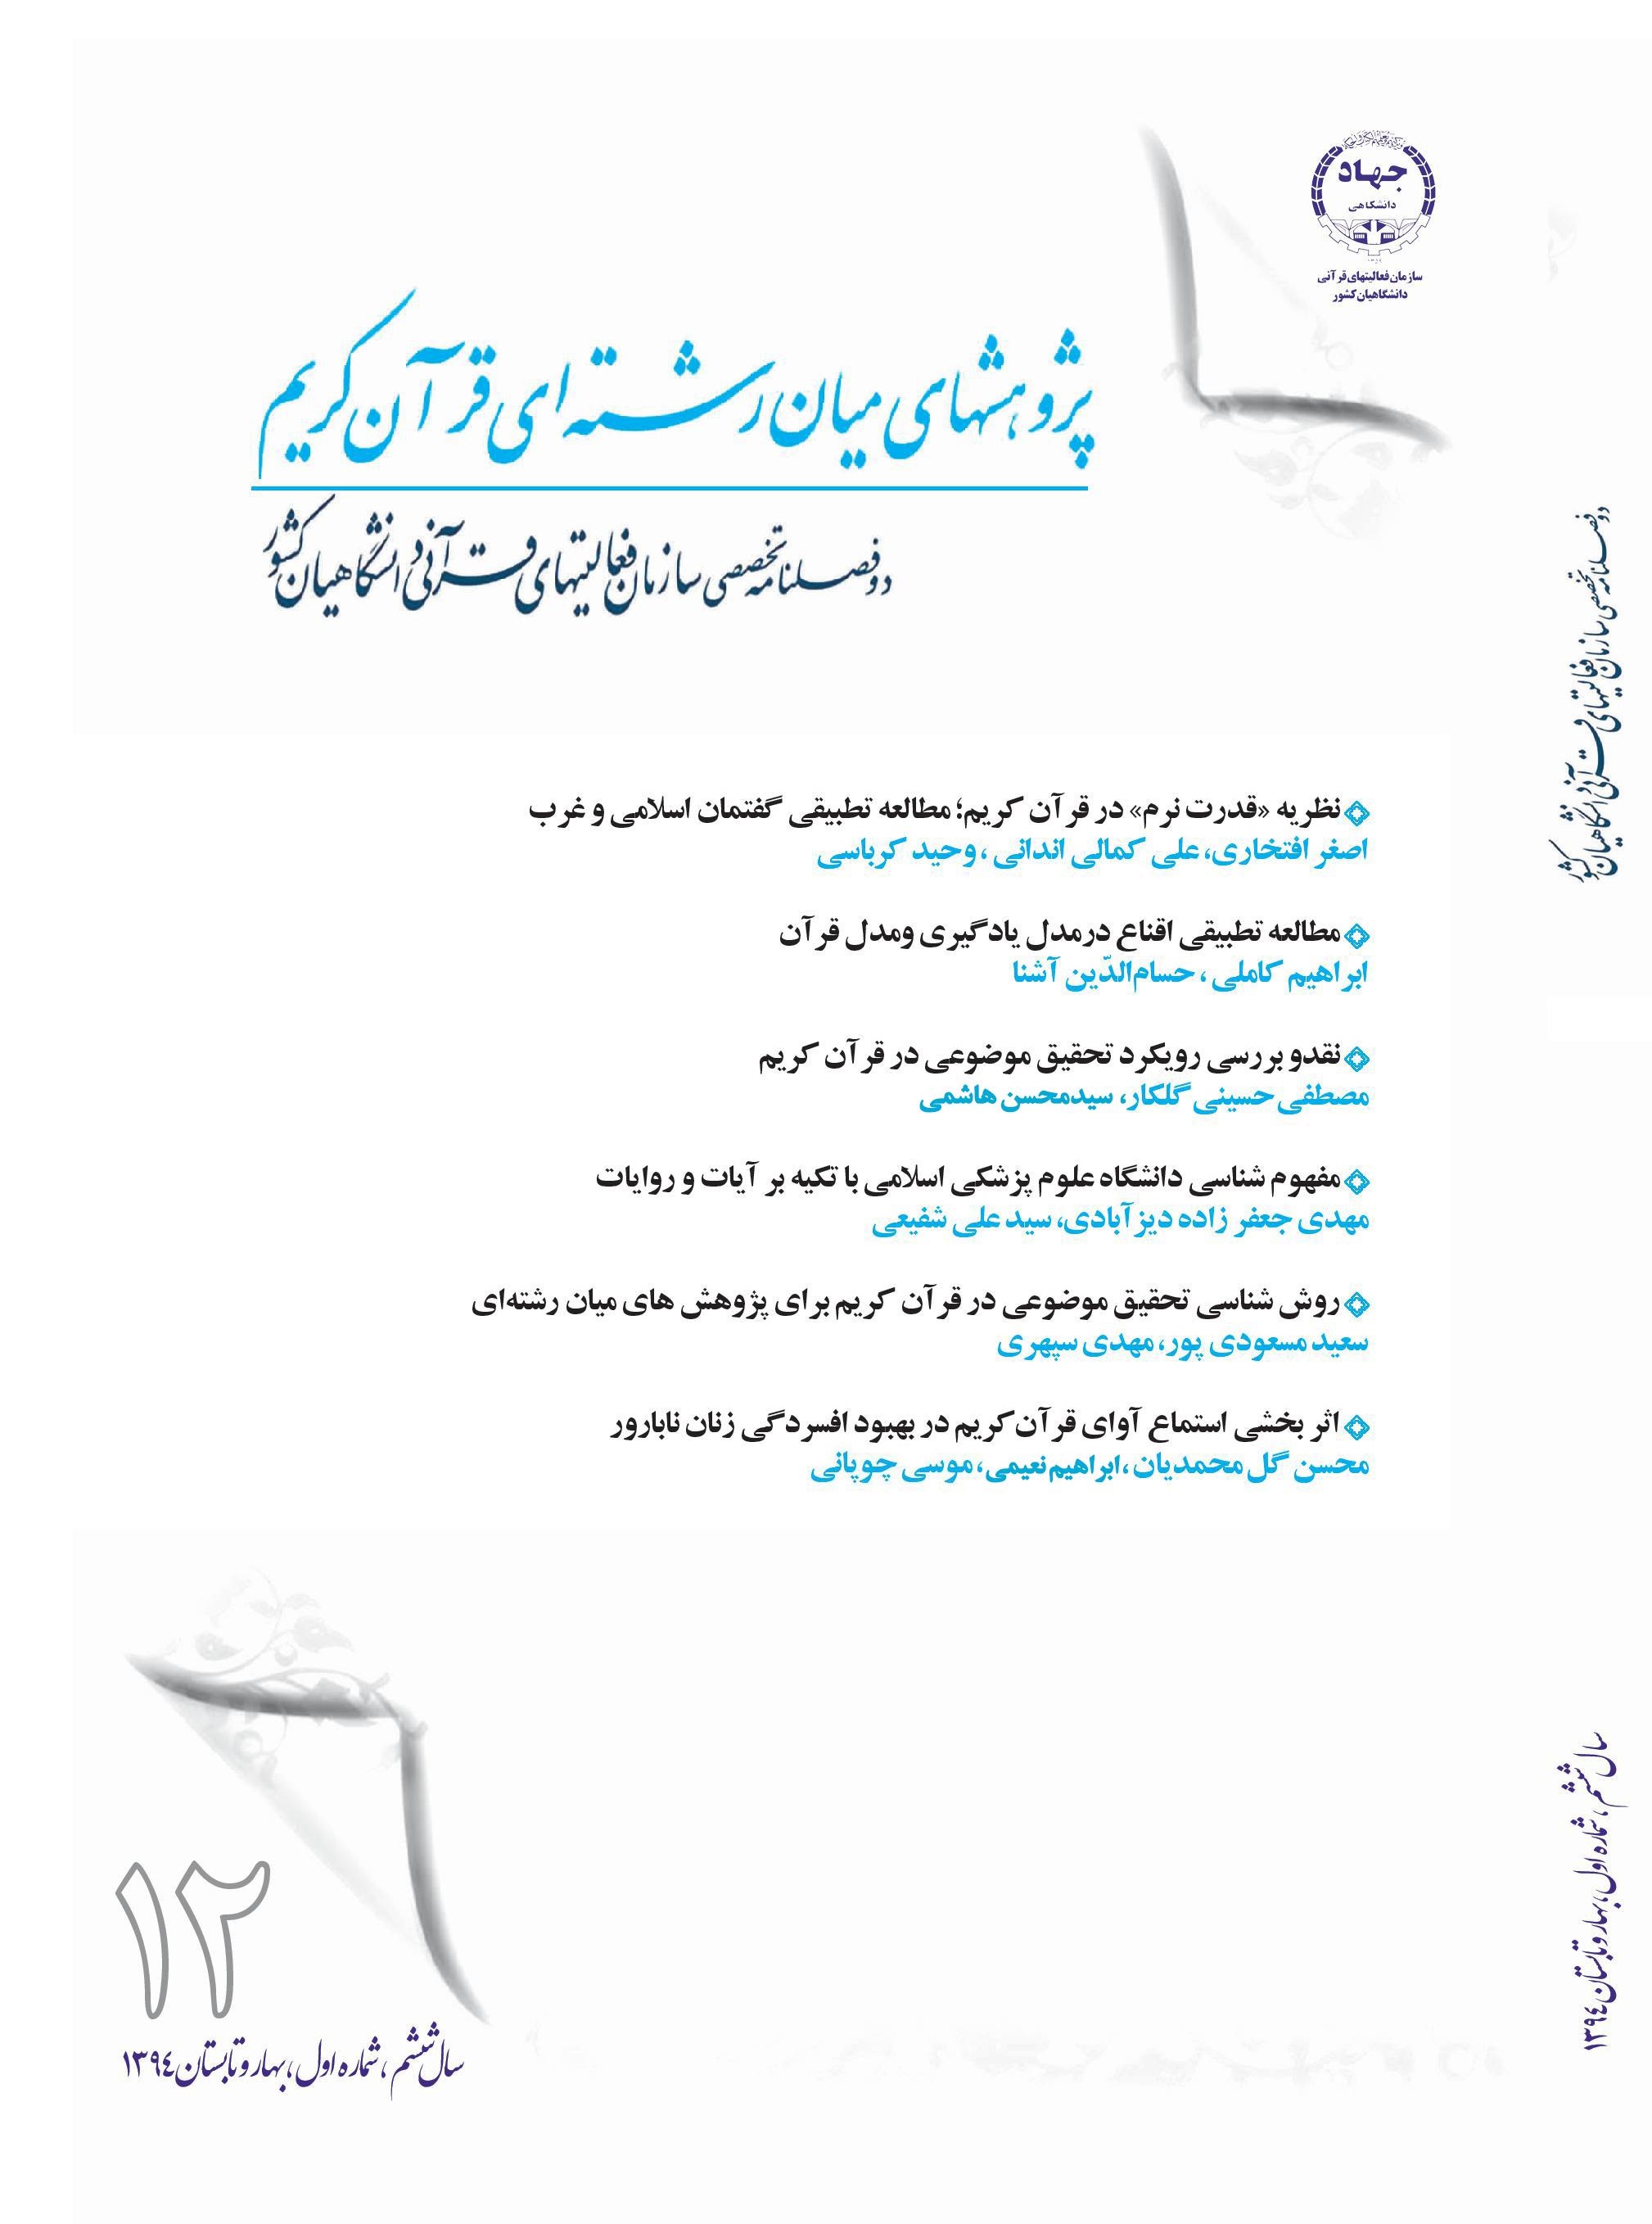 جهاد
دانشگاهی
سازمان فعالیتهای قرآنی
دانشگاهیان کشور
پژوهشهای میان رشته ای قرآن کریم
دو فصلنامه تخصصی سازمان فعالیتهای قرآنی دانشگاهیان کشور
نظریه «قدرت نرم» در قرآن کریم؛ مطالعه تطبیقی گفتمان اسلامی و غرب
اصغر افتخاری، علی کمالی اندانی ، وحید کرباسی
مطالعه تطبیقی اقناع درمدل یادگیری ومدل قرآن
ابراهیم کاملی ، حسام‌الدّین آشنا
نقدو بررسی رویکرد تحقیق موضوعی در قرآن کریم
مصطفی حسینی گلکار، سیدمحسن هاشمی
مفهوم شناسی دانشگاه علوم پزشکی اسلامی با تکیه بر آیات و روایات
مهدی جعفر زاده دیزآبادی، سید علی شفیعی
روش شناسی تحقیق موضوعی در قرآن کریم برای پژوهش های میان رشته‌ای
سعید مسعودی پور، مهدی سپهری
اثر بخشی استماع آوای قرآن کریم در بهبود افسردگی زنان نابارور
محسن گل محمدیان ،ابراهیم نعیمی، موسی چوپانی
۱۲
سال ششم ، شماره اول ، بهار و تابستان ۱۳۹٤
دو فصلنامه تخصصی سازمان فعالیتهای قرآنی دانشگاهیان کشور
سال ششم ، شماره اول ، بهار و تابستان ۱۳۹٤